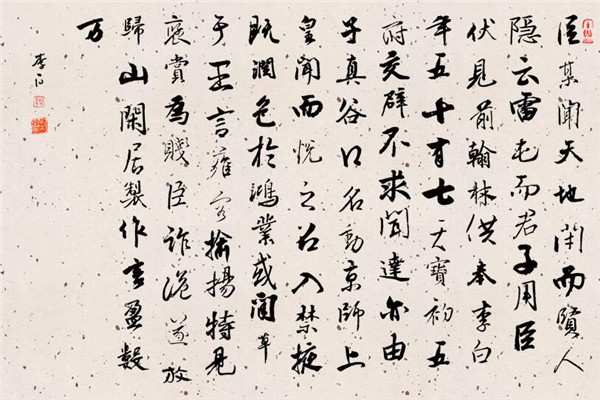 臣某闻天地閉而賢人
隐云雷屯而君子用臣
伏見前翰林供奉李白
年五十有七天寶初五
府交辟不求聞達亦由
子真谷口名動京師上
皇聞而悦之召入禁掖
既潤色於鴻業或間草
于王言雍容揄揚特見
褒賞為賤臣诈诡遂放
歸山閑居製作言盈數
万
李白